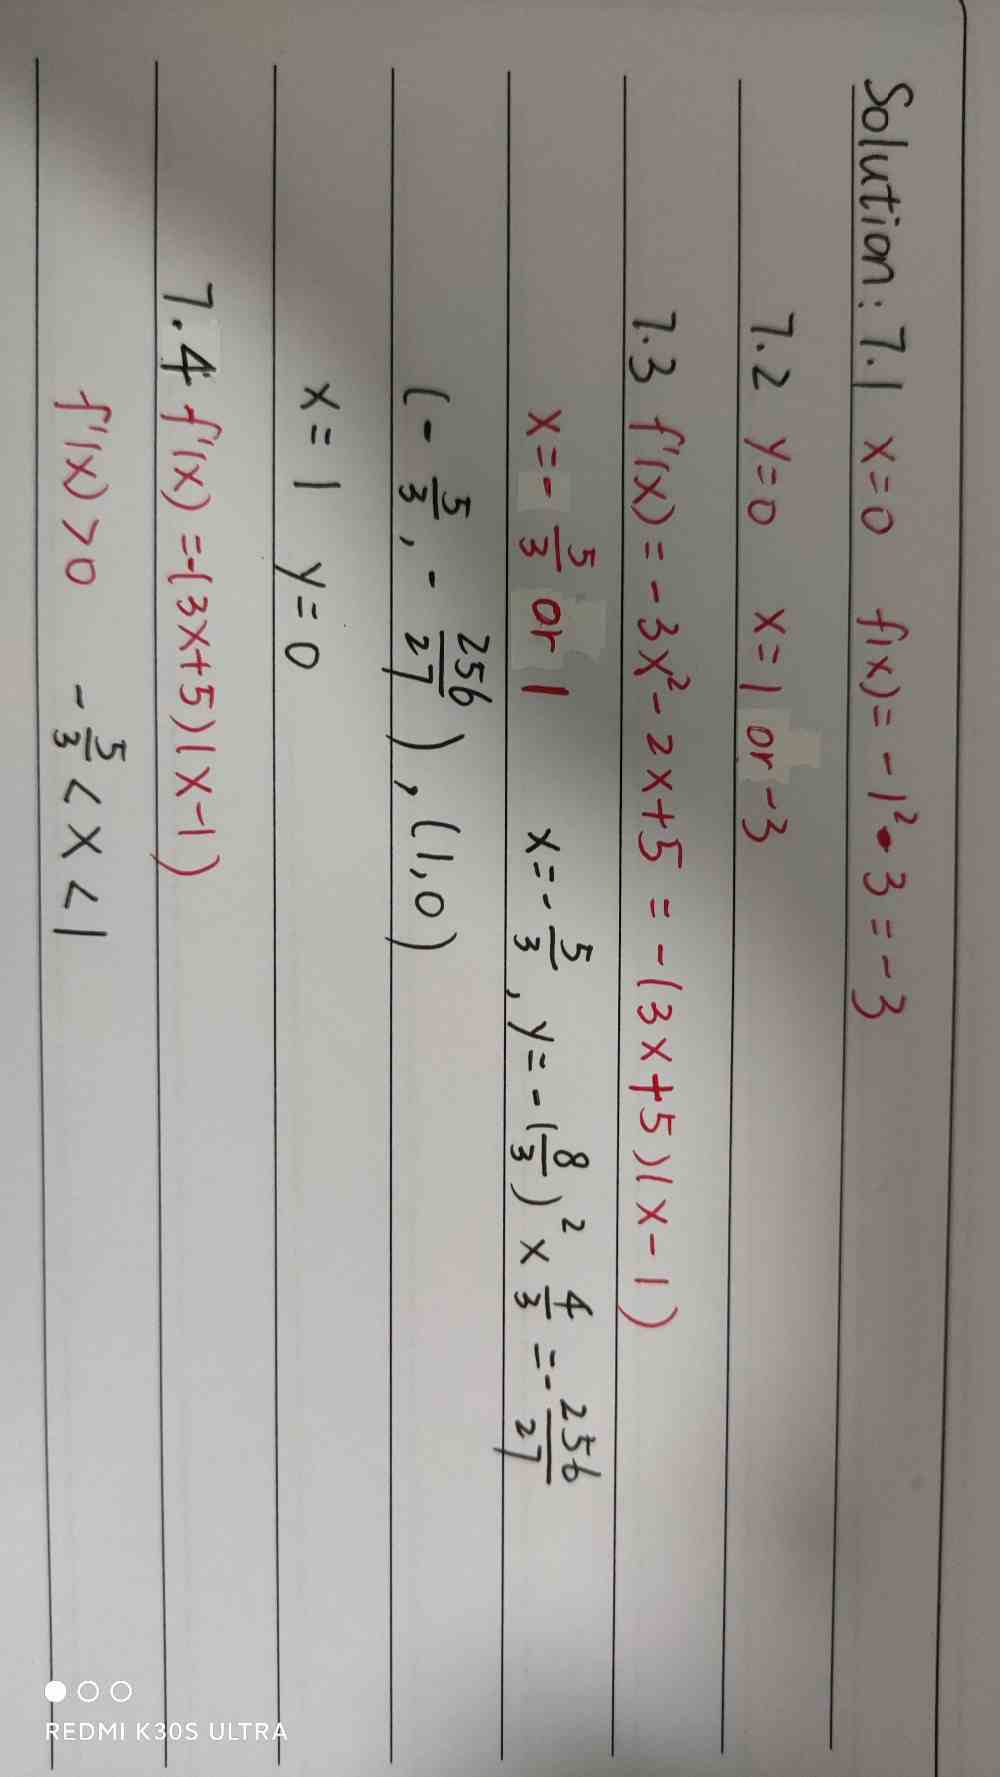 Solution: 7.1 x=0 f(x)= -1²·3=-3
7.2 y=0 x=1 or -3
7.3 f'(x)=-3x²-2x+5=-(3x+5)(x-1)
x=-5/3 or 1 x=-5/3, y=-(8/3)²×4/3=-256/27
(-5/3, -256/27), (1,0)
x=1 y=0
7.4 f'(x)=-(3x+5)(x-1)
f'(x)>0 -5/3<x<1
REDMI K30S ULTRA